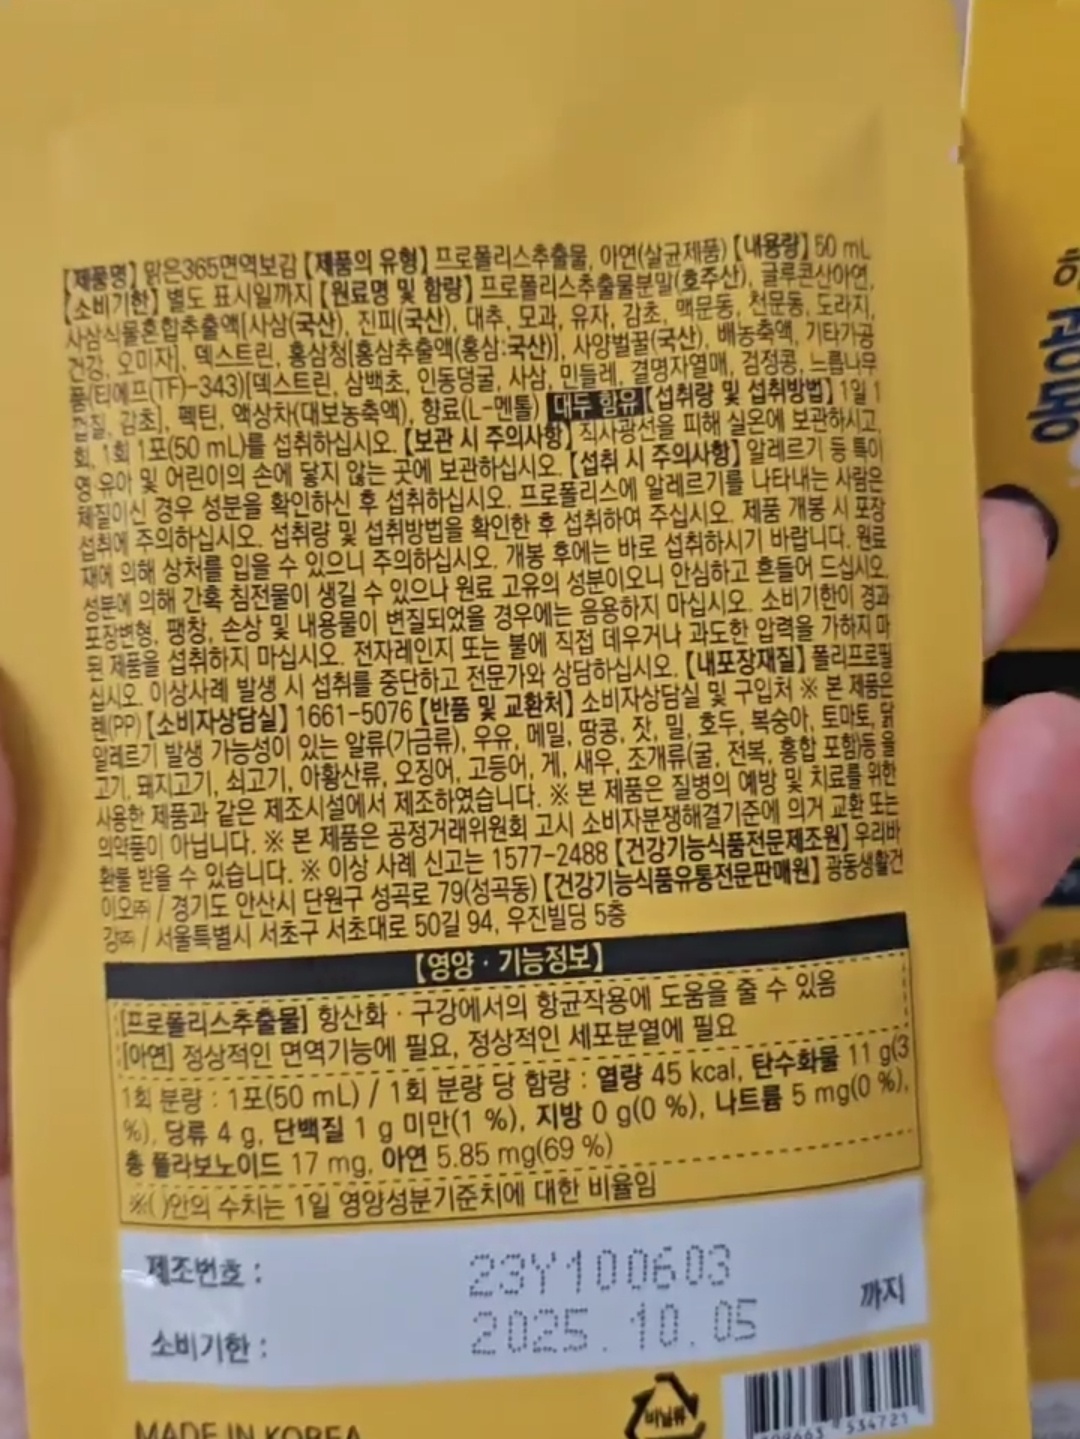 [제품명] 맑은365면역보감 [제품의 유형] 프로폴리스추출물, 아연(살균제품) [내용량] 50 mL
[소비기한] 별도 표시일까지 [원료명 및 함량] 프로폴리스추출물분말(호주산), 글루콘산아연,
사삼식물혼합추출액[사삼(국산), 진피(국산), 대추, 모과, 유자, 감초, 맥문동, 천문동, 도라지,
건강, 오미자], 덱스트린, 홍삼청[홍삼추출액(홍삼:국산)], 사양벌꿀(국산), 배농축액, 기타가공
품(티에프(TF)-343)[덱스트린, 삼백초, 인동덩굴, 사삼, 민들레, 결명자열매, 검정콩, 느릅나무
껍질, 감초], 펙틴, 액상차(대보농축액), 향료(L-멘톨) 대두 함유 [섭취량 및 섭취방법] 1일 1
회, 1회 1포(50 mL)를 섭취하십시오. [보관 시 주의사항] 직사광선을 피해 실온에 보관하시고,
영 유아 및 어린이의 손에 닿지 않는 곳에 보관하십시오. [섭취 시 주의사항] 알레르기 등 특이
체질이신 경우 성분을 확인하신 후 섭취하십시오. 프로폴리스에 알레르기를 나타내는 사람은
섭취에 주의하십시오. 섭취량 및 섭취방법을 확인한 후 섭취하여 주십시오. 제품 개봉 시 포장
재에 의해 상처를 입을 수 있으니 주의하십시오. 개봉 후에는 바로 섭취하시기 바랍니다. 원료
성분에 의해 간혹 침전물이 생길 수 있으나 원료 고유의 성분이오니 안심하고 흔들어 드십시오.
포장변형, 팽창, 손상 및 내용물이 변질되었을 경우에는 음용하지 마십시오. 소비기한이 경과
된 제품을 섭취하지 마십시오. 전자레인지 또는 불에 직접 데우거나 과도한 압력을 가하지 마
십시오. 이상사례 발생 시 섭취를 중단하고 전문가와 상담하십시오. [내포장재질] 폴리프로필
렌(PP) [소비자상담실] 1661-5076 [반품 및 교환처] 소비자상담실 및 구입처 ※ 본 제품은
알레르기 발생 가능성이 있는 알류(가금류), 우유, 메밀, 땅콩, 잣, 밀, 호두, 복숭아, 토마토, 닭
고기, 돼지고기, 쇠고기, 아황산류, 오징어, 고등어, 게, 새우, 조개류(굴, 전복, 홍합 포함)등 을
사용한 제품과 같은 제조시설에서 제조하였습니다. ※ 본 제품은 질병의 예방 및 치료를 위한
의약품이 아닙니다. ※ 본 제품은 공정거래위원회 고시 소비자분쟁해결기준에 의거 교환 또는
환불 받을 수 있습니다. ※ 이상 사례 신고는 1577-2488 [건강기능식품전문제조원] 우리바
이오㈜ / 경기도 안산시 단원구 성곡로 79(성곡동) [건강기능식품유통전문판매원] 광동생활건
강㈜ / 서울특별시 서초구 서초대로 50길 94, 우진빌딩 5층
[영양 · 기능정보]
[프로폴리스추출물] 항산화 · 구강에서의 항균작용에 도움을 줄 수 있음
[아연] 정상적인 면역기능에 필요, 정상적인 세포분열에 필요
1회 분량 : 1포(50 mL) / 1회 분량 당 함량 : 열량 45 kcal, 탄수화물 11 g(3
%), 당류 4 g, 단백질 1 g 미만(1 %), 지방 0 g(0 %), 나트륨 5 mg(0 %),
총 플라보노이드 17 mg, 아연 5.85 mg(69 %)
※( )안의 수치는 1일 영양성분기준치에 대한 비율임
제조번호 : 23Y100603
소비기한 : 2025. 10. 05 까지
MADE IN KOREA
비닐류
534721
광동